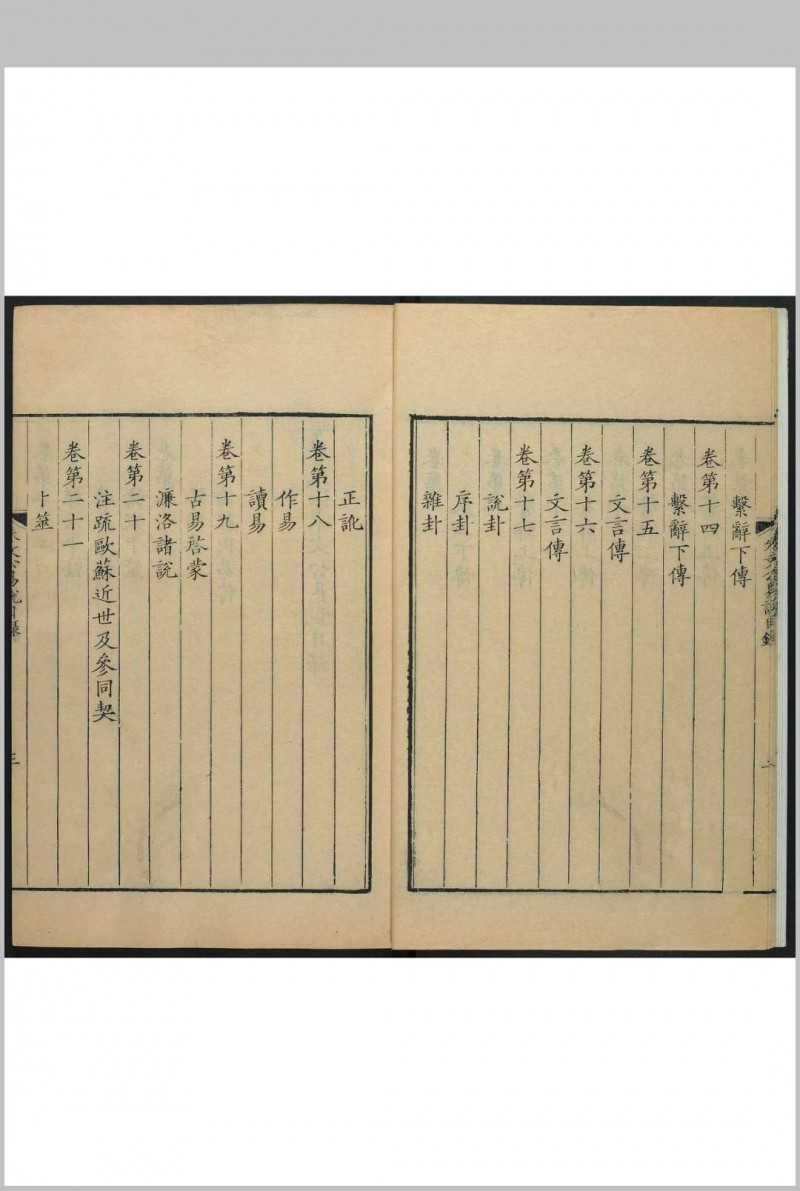 朱文公易說目錄
二
繫辭下傳
卷第十四
繫辭下傳
卷第十五
文言傳
卷第十六
文言傳
卷第十七
說卦
序卦
雜卦
正訛
卷第十八
作易
讀易
卷第十九
古易啓蒙
濂洛諸說
卷第二十
注疏歐蘇近世及參同契
卷第二十一
卜筮
朱文公易說目錄
三